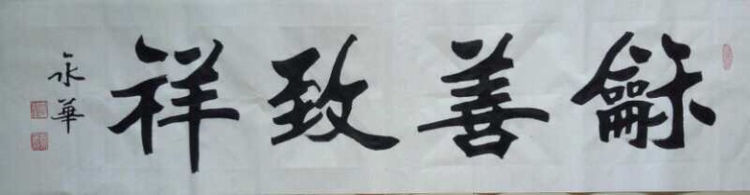 龢善致祥
永華